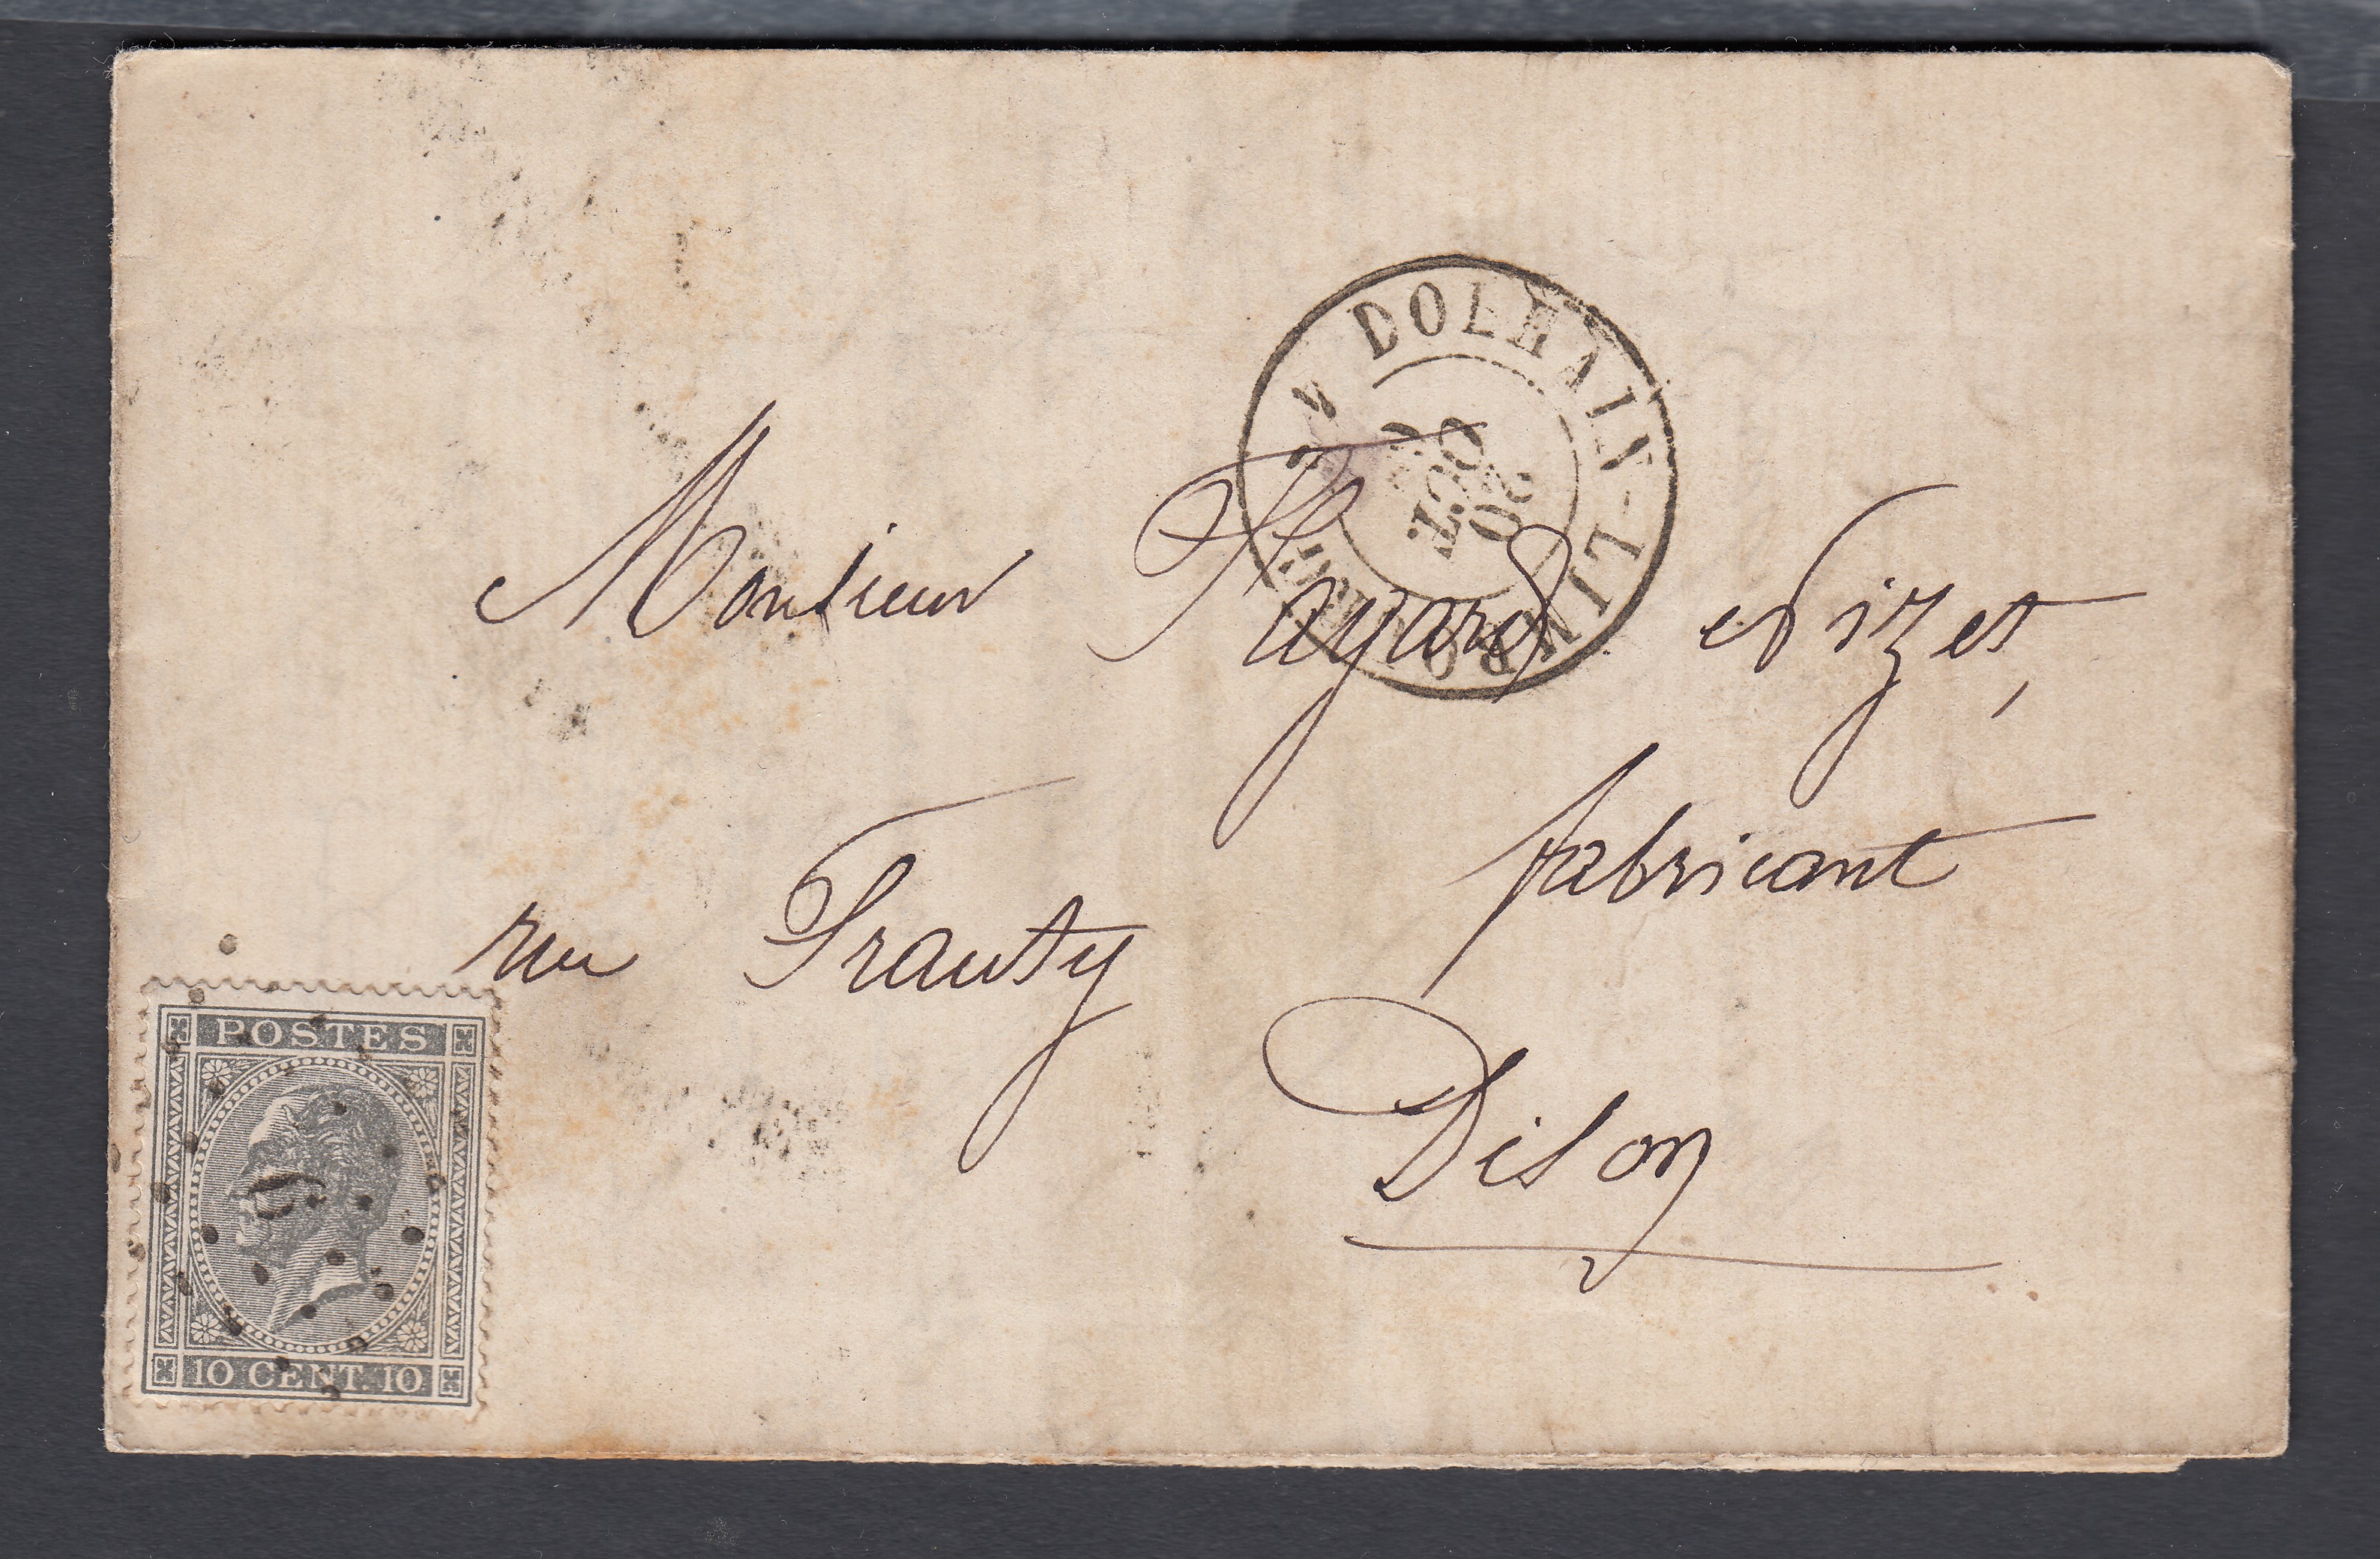 DOLHAIN-LIMBOURG
20
OCT.
Monsieur Hayard Nizet,
fabricant
rue Trauty
Dison
POSTES
10 CENT. 10